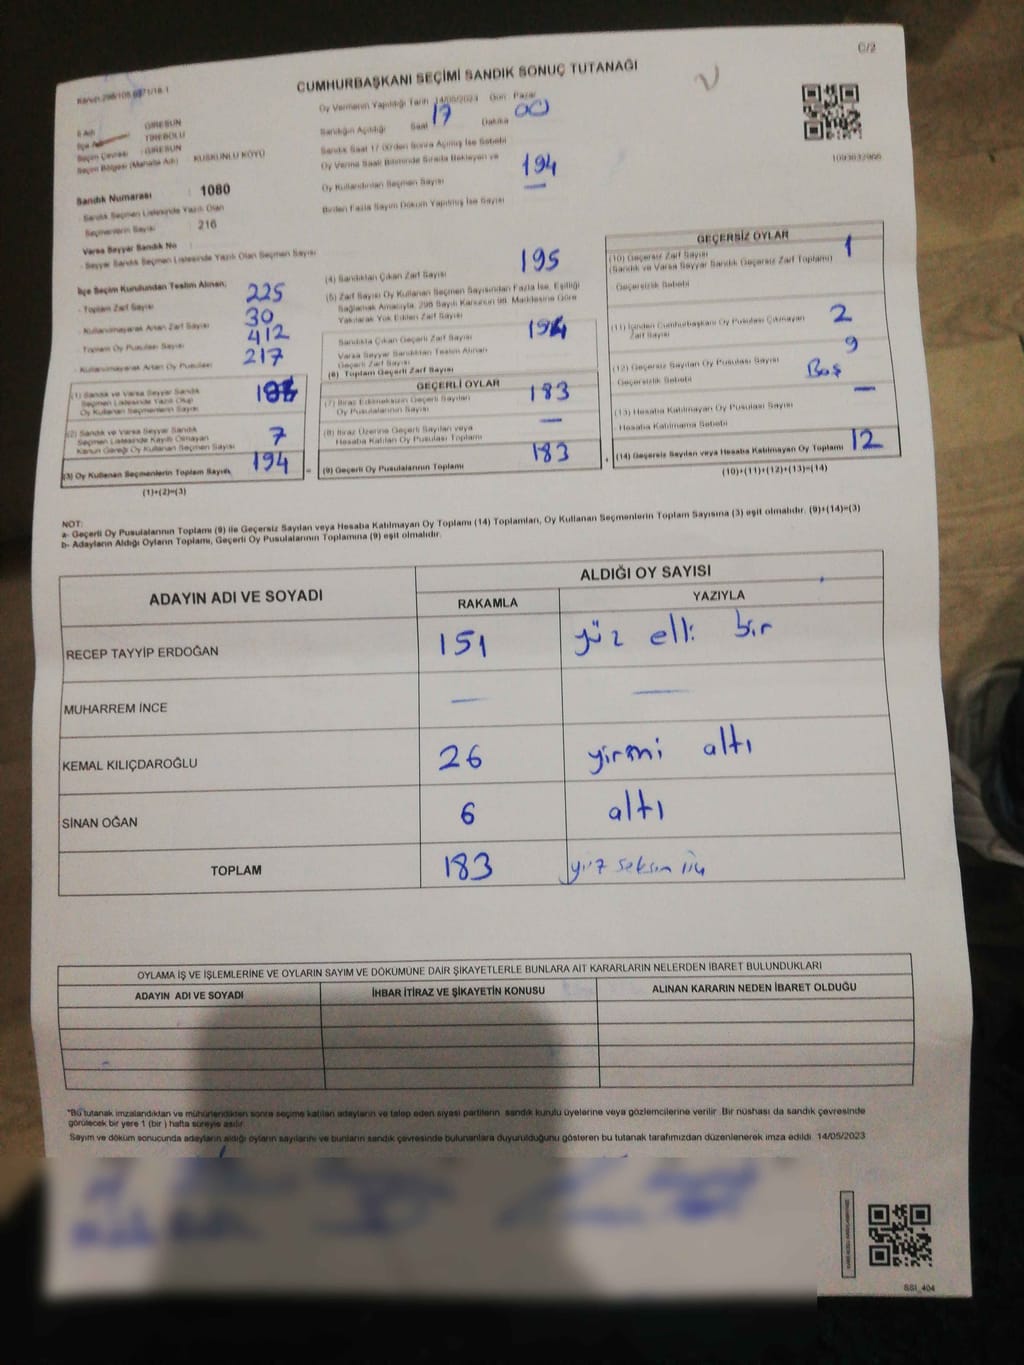 C/2
CUMHURBAŞKANI SEÇİMİ SANDIK SONUÇ TUTANAĞI
Oy Vermenin Yapıldığı Tarih 14/05/2023 Gün: Pazar
Sandığın Açıldığı Saat 17 Dakika 00
Sandık Saat 17.00'den Sonra Açılmış İse Sebebi
İli Adı GİRESUN
İlçe Adı TİREBOLU
Seçim Çevresi GİRESUN
Seçim Bölgesi (Mahalle Adı) KUSKUNLU KÖYÜ
Oy Verme Saati Bitiminde Sırada Bekleyen ve
Oy Kullandırılan Seçmen Sayısı 194
Birden Fazla Sayım Döküm Yapılmış İse Sayısı —
Sandık Numarası : 1080
- Sandık Seçmen Listesinde Yazılı Olan
Seçmenlerin Sayısı : 216
Varsa Seyyar Sandık No :
- Seyyar Sandık Seçmen Listesinde Yazılı Olan Seçmen Sayısı
İlçe Seçim Kurulundan Teslim Alınan;
- Toplam Zarf Sayısı 225
- Kullanılmayarak Artan Zarf Sayısı 30
- Toplam Oy Pusulası Sayısı 412
- Kullanılmayarak Artan Oy Pusulası 217
(1) Sandık ve Varsa Seyyar Sandık
Seçmen Listesinde Yazılı Olup
Oy Kullanan Seçmenlerin Sayısı
(2) Sandık ve Varsa Seyyar Sandık
Seçmen Listesinde Kayıtlı Olmayan
Kanun Gereği Oy Kullanan Seçmen Sayısı 7
(3) Oy Kullanan Seçmenlerin Toplam Sayısı 194
(1)+(2)=(3)
(4) Sandıktan Çıkan Zarf Sayısı 195
(5) Zarf Sayısı Oy Kullanan Seçmen Sayısından Fazla İse, Eşitliği
Sağlamak Amacıyla, 298 Sayılı Kanunun 98. Maddesine Göre
Yakılarak Yok Edilen Zarf Sayısı
Sandıkta Çıkan Geçerli Zarf Sayısı 194
Varsa Seyyar Sandıktan Teslim Alınan
Geçerli Zarf Sayısı
(6) Toplam Geçerli Zarf Sayısı
GEÇERLİ OYLAR
(7) İtiraz Edilmeksizin Geçerli Sayılan
Oy Pusulalarının Sayısı 183
(8) İtiraz Üzerine Geçerli Sayılan veya
Hesaba Katılan Oy Pusulası Toplamı —
(9) Geçerli Oy Pusulalarının Toplamı 183
GEÇERSİZ OYLAR
(10) Geçersiz Zarf Sayısı 1
(Sandık ve Varsa Seyyar Sandık Geçersiz Zarf Toplamı)
Geçersizlik Sebebi
(11) İçinden Cumhurbaşkanı Oy Pusulası Çıkmayan
Zarf Sayısı 2
(12) Geçersiz Sayılan Oy Pusulası Sayısı 9
Geçersizlik Sebebi Boş
(13) Hesaba Katılmayan Oy Pusulası Sayısı —
Hesaba Katılmama Sebebi
(14) Geçersiz Sayılan veya Hesaba Katılmayan Oy Toplamı 12
(10)+(11)+(12)+(13)=(14)
NOT:
a- Geçerli Oy Pusulalarının Toplamı (9) ile Geçersiz Sayılan veya Hesaba Katılmayan Oy Toplamı (14) Toplamları, Oy Kullanan Seçmenlerin Toplam Sayısına (3) eşit olmalıdır. (9)+(14)=(3)
b- Adayların Aldığı Oyların Toplamı, Geçerli Oy Pusulalarının Toplamına (9) eşit olmalıdır.
ADAYIN ADI VE SOYADI ALDIĞI OY SAYISI
RAKAMLA YAZIYLA
RECEP TAYYİP ERDOĞAN 151 yüz elli bir
MUHARREM İNCE — —
KEMAL KILIÇDAROĞLU 26 yirmi altı
SİNAN OĞAN 6 altı
TOPLAM 183 yüz seksen üç
OYLAMA İŞ VE İŞLEMLERİNE VE OYLARIN SAYIM VE DÖKÜMÜNE DAİR ŞİKAYETLERLE BUNLARA AİT KARARLARIN NELERDEN İBARET BULUNDUKLARI
ADAYIN ADI VE SOYADI İHBAR İTİRAZ VE ŞİKAYETİN KONUSU ALINAN KARARIN NEDEN İBARET OLDUĞU
*Bu tutanak imzalandıktan ve mühürlendikten sonra seçime katılan adayların ve talep eden siyasi partilerin sandık kurulu üyelerine veya gözlemcilerine verilir. Bir nüshası da sandık çevresinde
görülecek bir yere 1 (bir) hafta süreyle asılır.
Sayım ve döküm sonucunda adayların aldığı oyların sayılarını ve bunların sandık çevresinde bulunanlara duyurulduğunu gösteren bu tutanak tarafımızdan düzenlenerek imza edildi. 14/05/2023
SSI_404